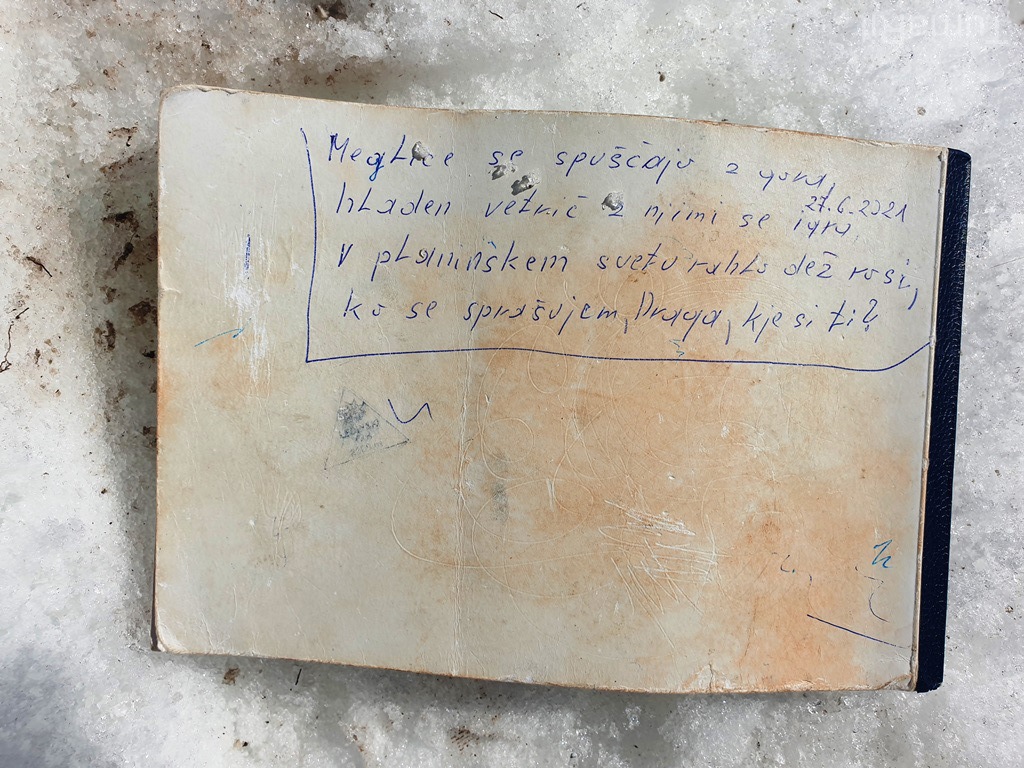 Meglice se spuščajo z gora,
27.6.2021
hladen vetrič z njimi se igra,
v planinskem svetu rahlo dež rosi,
ko se sprašujem, Draga, kje si ti?